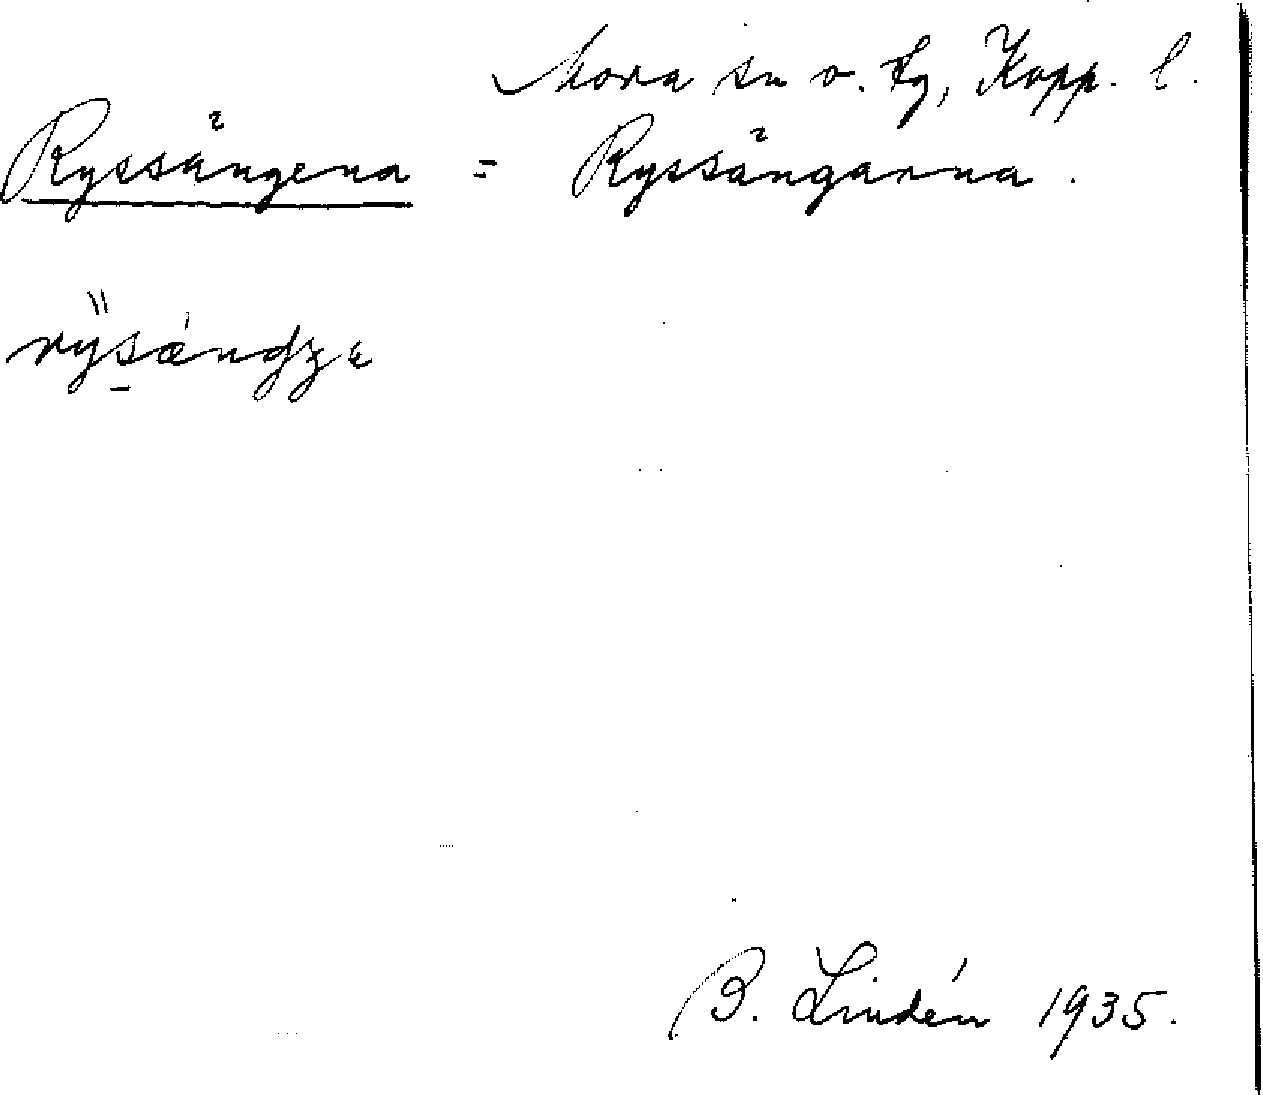 Mora sn o. tg, Kopp. l.
Ryssängena = Ryssängarna.
rysændʒɛ
B. Lindén 1935.